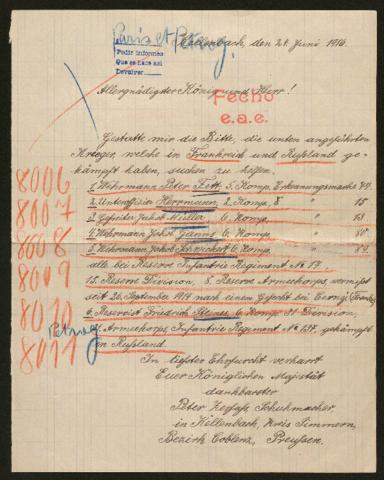 Paris et Petrog.
Kellenbach, den 21. Juni 1916.
Pedir informes
Que se hace así
Devolver
Allergnädigster König und Herr!
Fecho
e.a.e.
Gestatte mir die Bitte, die unten angeführten
Krieger, welche in Frankreich und Rußland ge-
kämpft haben, suchen zu
8006
1. Wehrmann Peter 5. Komp. Erkennungsmarke
8007
2. Unteroffizier Herrmann, 2. Komp. 8 " 15
3. Gefreiter Jakob Müller 6. Komp. " 13
8008
4. Wehrmann Jakob 6. Komp.
5. Wehrmann Jakob 6. Komp.
alle bei Reserve Infantrie Regiment No 17
8009
15. Reserve Division, 8. Reserve Armeekorps vermißt
seit 26. September 1914 nach einem Gefecht bei
8010
6. Reservist Friedrich 6. Komp. 31 Division,
Petrog.
Armeekorps, Infantrie Regiment No 137, gekämpft
8011
in Rußland.
In tiefster Ehrfurcht verharrt
Euer Königlichen Majestät
dankbarster
Peter Schuhmacher,
in Kellenbach, Kreis Simmern,
Bezirk Coblenz, Preussen.